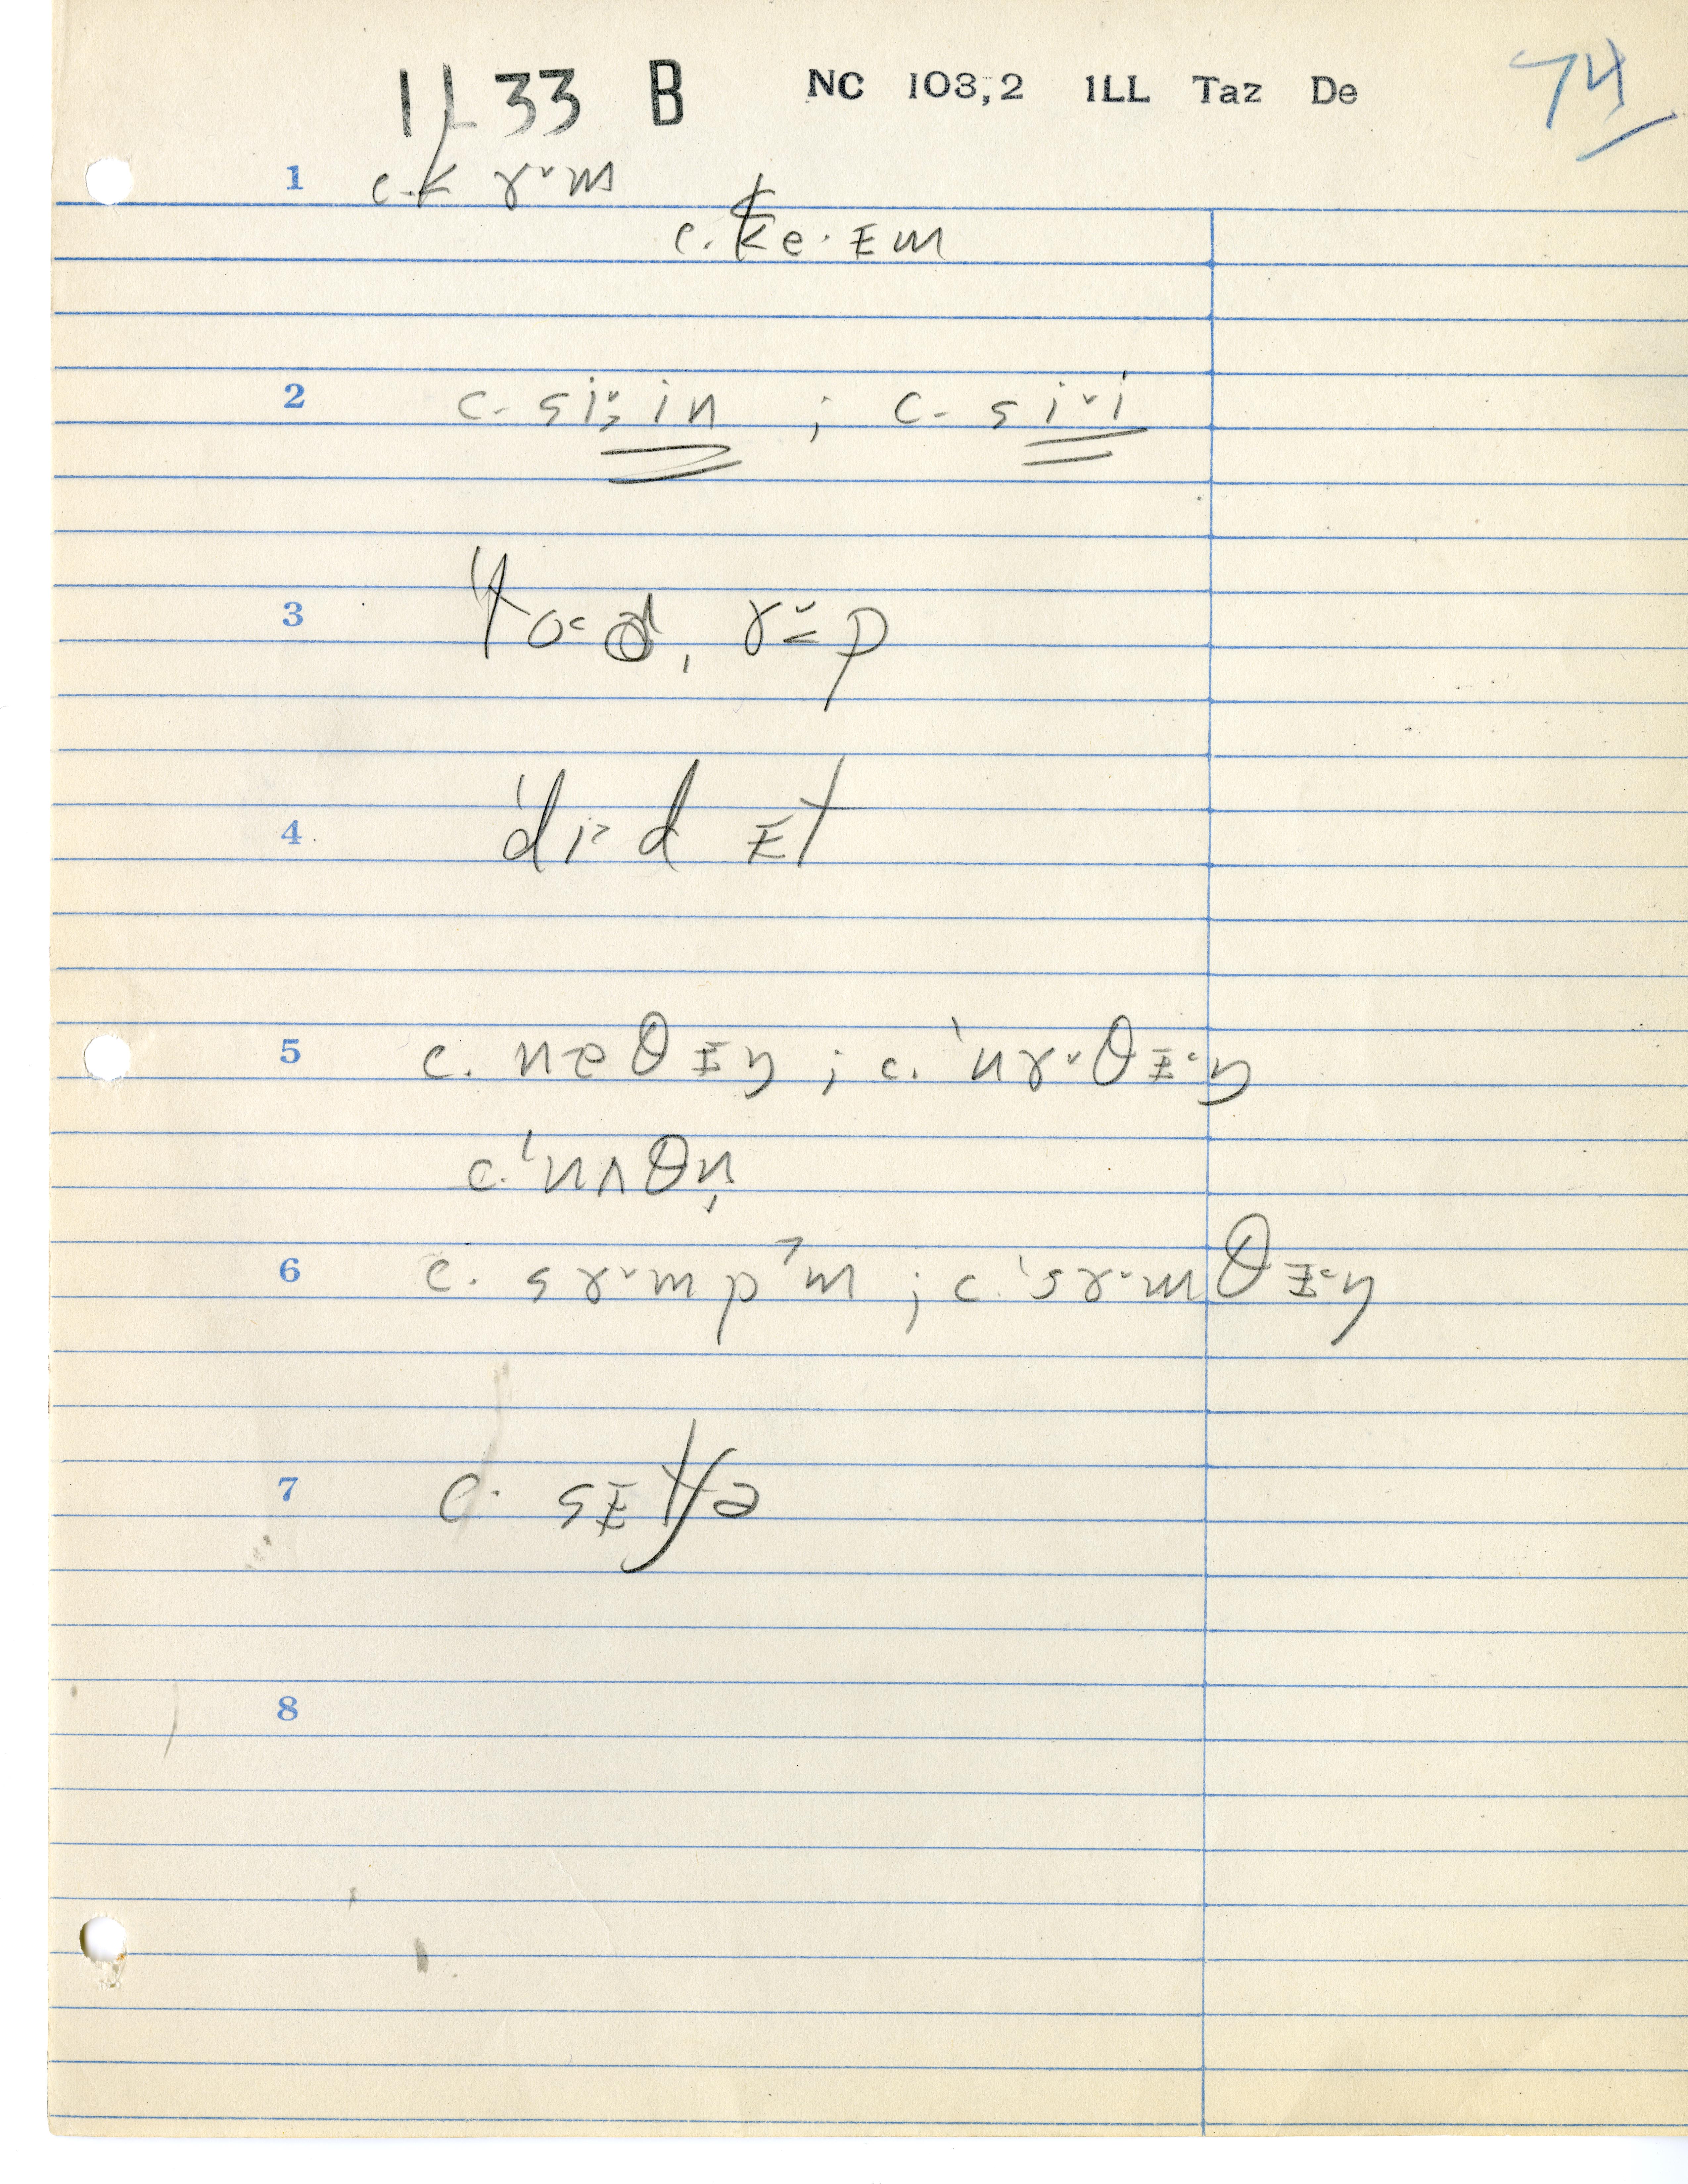 IL 33 B NC 103,2 ILL Taz De 74
1 c. k ɤ˅m
c. ke· ᵻm
2 c. si˅ in ; c. si˅i
3 ˈto˂d, ɤ˅p
4 ˈdi˃d ᵻt
5 c. nɘθᵻŋ ; c. ˈnɤ˅θᵻ˂ŋ
c. ˈnʌθn̩
6 c. sɤ˅mpˀm ; c. ˈsɤ˅mθᵻ˂ŋ
7 c. sᵻtʃə
8